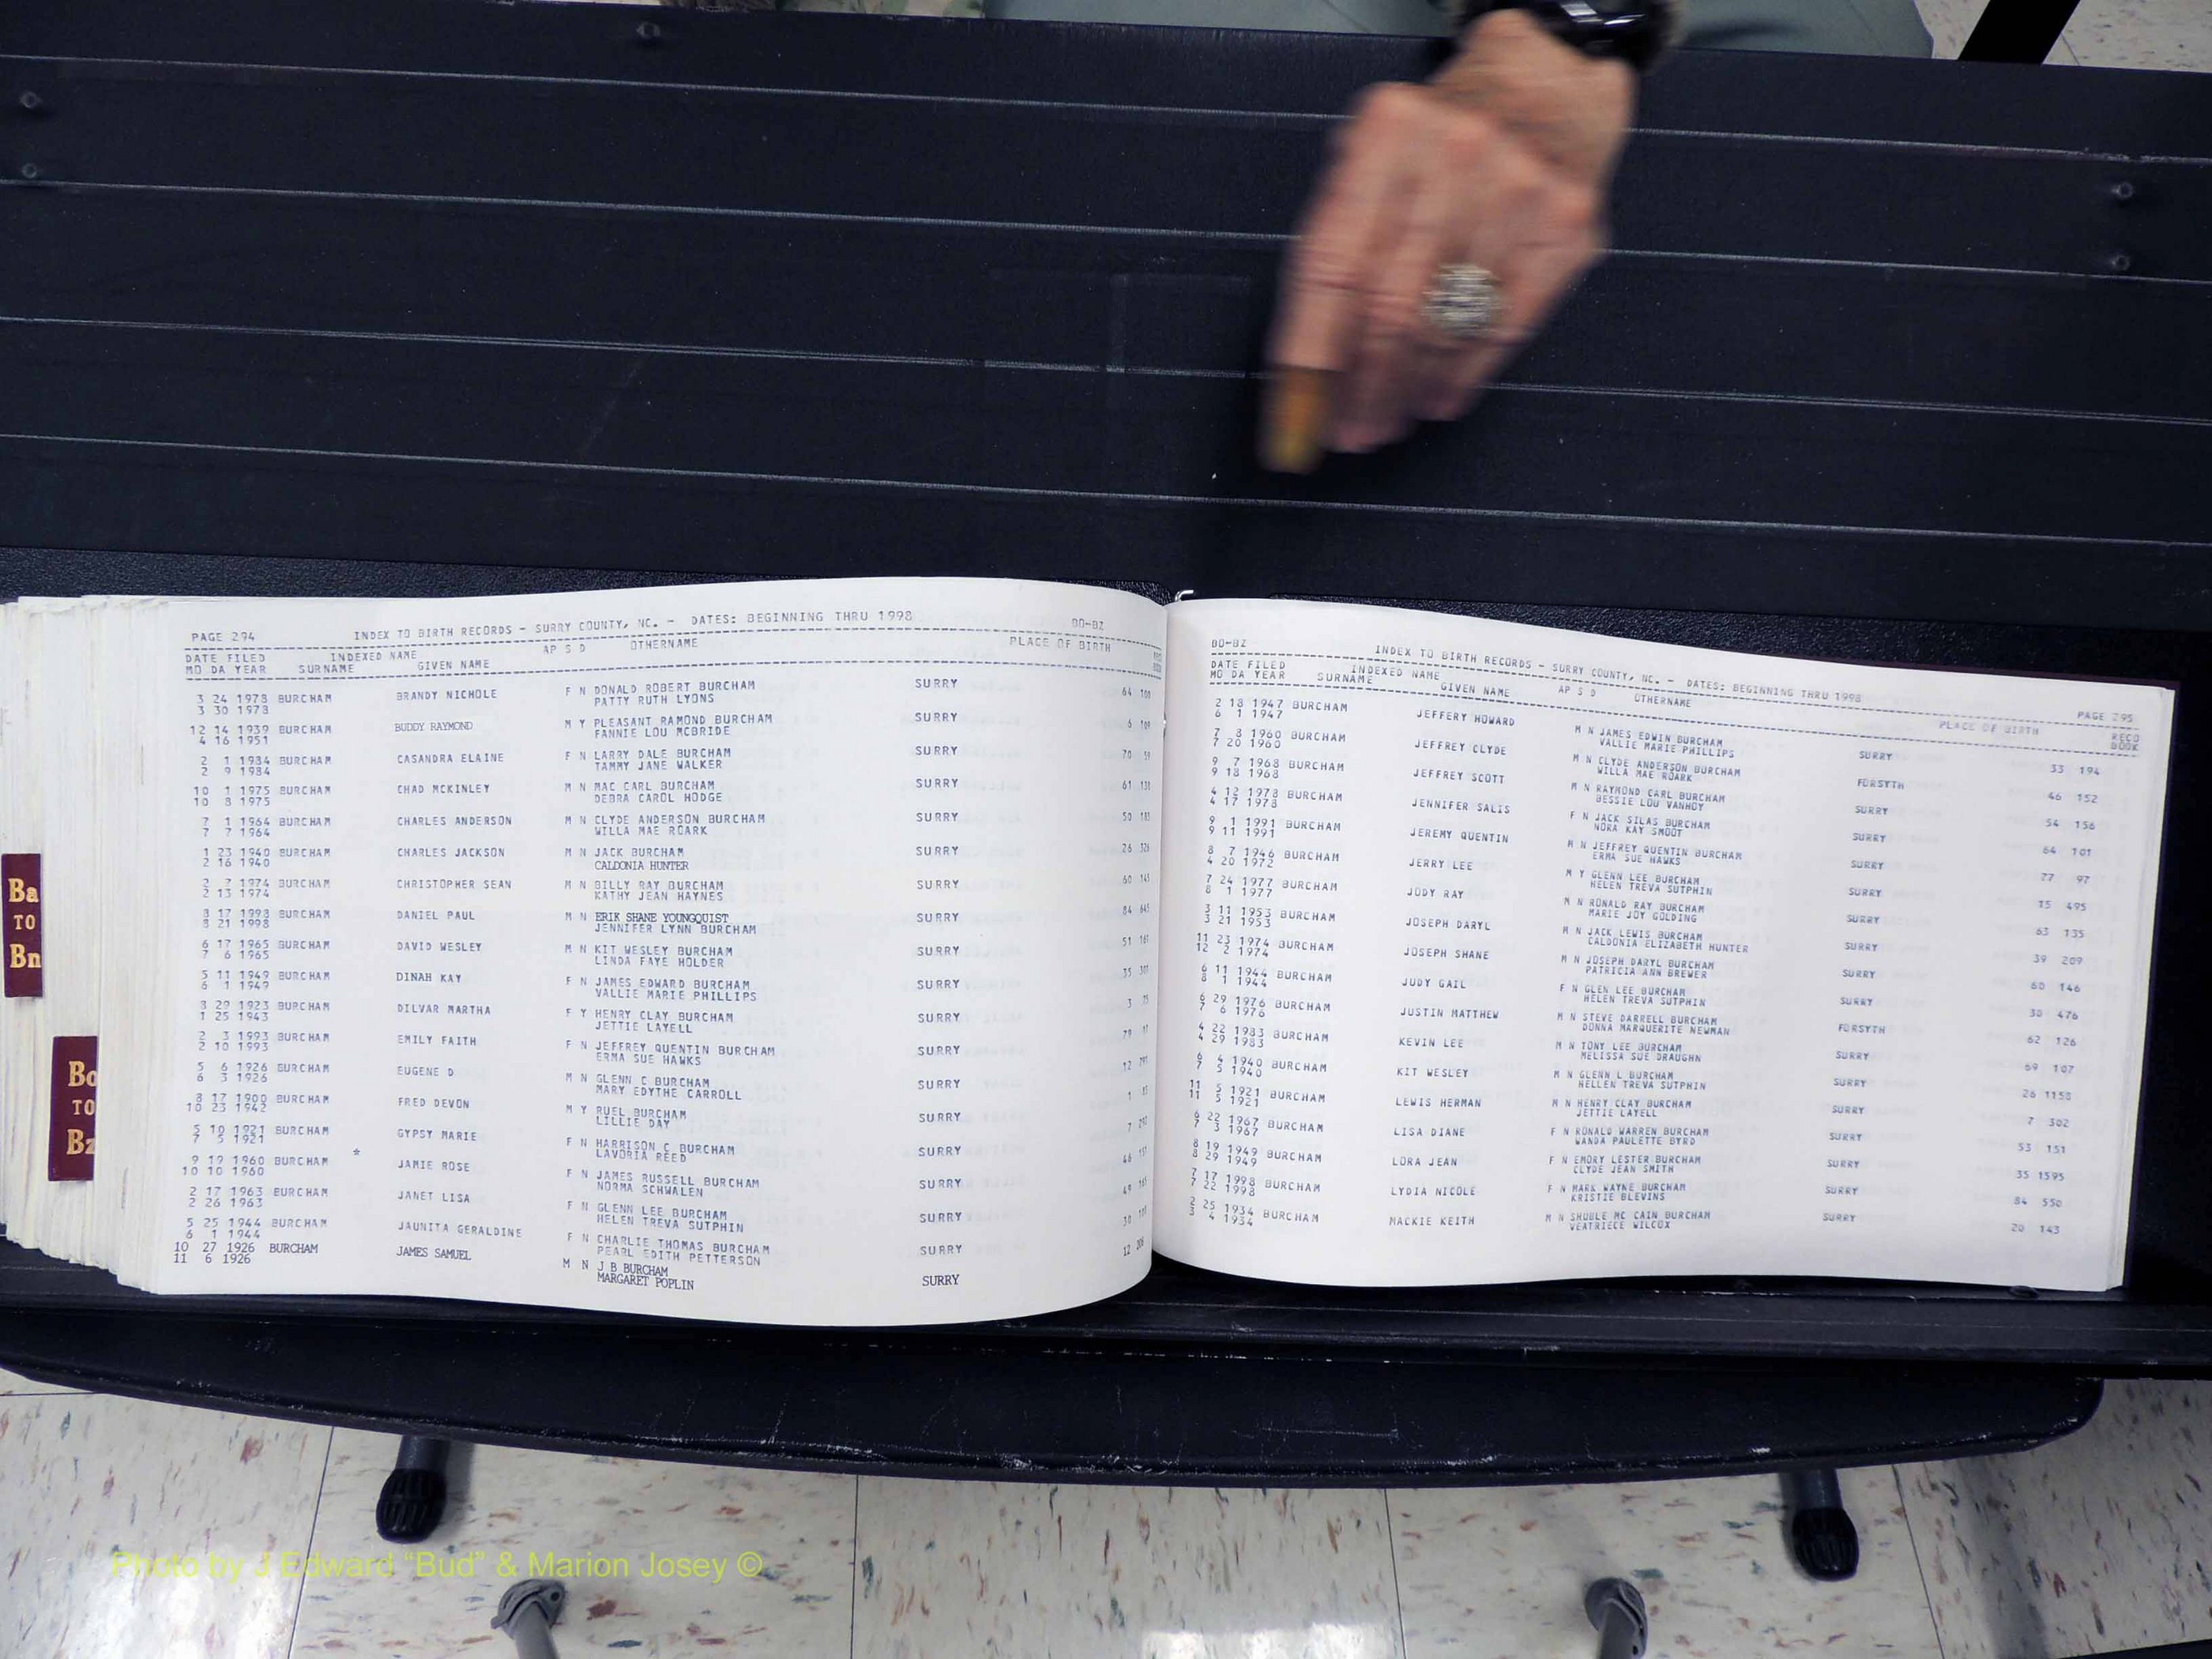 PAGE 294 INDEX TO BIRTH RECORDS - SURRY COUNTY, NC. - DATES: BEGINNING THRU 1998 BO-BZ
DATE FILED INDEXED NAME AP S D OTHERNAME PLACE OF BIRTH
MO DA YEAR SURNAME GIVEN NAME
3 24 1978 BURCHAM BRANDY NICHOLE F N DONALD ROBERT BURCHAM SURRY 64 100
3 30 1978 PATTY RUTH LYONS
12 14 1939 BURCHAM BUDDY RAYMOND M Y PLEASANT RAMOND BURCHAM SURRY 6 109
4 16 1951 FANNIE LOU MCBRIDE
2 1 1984 BURCHAM CASANDRA ELAINE F N LARRY DALE BURCHAM SURRY 70 59
2 9 1984 TAMMY JANE WALKER
10 1 1975 BURCHAM CHAD MCKINLEY M N MAC CARL BURCHAM SURRY 61
10 8 1975 DEBRA CAROL HODGE
7 1 1964 BURCHAM CHARLES ANDERSON M N CLYDE ANDERSON BURCHAM SURRY 50
7 7 1964 WILLA MAE ROARK
1 23 1940 BURCHAM CHARLES JACKSON M N JACK BURCHAM SURRY 26 326
2 16 1940 CALDONIA HUNTER
2 7 1974 BURCHAM CHRISTOPHER SEAN M N BILLY RAY BURCHAM SURRY 60 145
2 13 1974 KATHY JEAN HAYNES
8 17 1998 BURCHAM DANIEL PAUL M N ERIK SHANE YOUNGQUIST SURRY 84 645
8 21 1998 JENNIFER LYNN BURCHAM
6 17 1965 BURCHAM DAVID WESLEY M N KIT WESLEY BURCHAM SURRY 51
7 6 1965 LINDA FAYE HOLDER
5 11 1949 BURCHAM DINAH KAY F N JAMES EDWARD BURCHAM SURRY 35
6 1 1949 VALLIE MARIE PHILLIPS
3 29 1923 BURCHAM DILVAR MARTHA F Y HENRY CLAY BURCHAM SURRY 3
1 25 1943 JETTIE LAYELL
2 3 1993 BURCHAM EMILY FAITH F N JEFFREY QUENTIN BURCHAM SURRY 79
2 10 1993 ERMA SUE HAWKS
5 6 1926 BURCHAM EUGENE D M N GLENN C BURCHAM SURRY 12
6 3 1926 MARY EDYTHE CARROLL
8 17 1900 BURCHAM FRED DEVON M Y RUEL BURCHAM SURRY 1
10 23 1942 LILLIE DAY
5 10 1921 BURCHAM GYPSY MARIE F N HARRISON C BURCHAM SURRY 7
7 5 1921 LAVORIA REED
9 19 1960 BURCHAM * JAMIE ROSE F N JAMES RUSSELL BURCHAM SURRY 46
10 10 1960 NORMA SCHWALEN
2 17 1963 BURCHAM JANET LISA F N GLENN LEE BURCHAM SURRY 49
2 26 1963 HELEN TREVA SUTPHIN
5 25 1944 BURCHAM JAUNITA GERALDINE F N CHARLIE THOMAS BURCHAM SURRY 30
6 1 1944 PEARL EDITH PETTERSON
10 27 1926 BURCHAM JAMES SAMUEL M N J B BURCHAM SURRY 12 206
11 6 1926 MARGARET POPLIN
BO-BZ INDEX TO BIRTH RECORDS - SURRY COUNTY, NC. - DATES: BEGINNING THRU 1998 PAGE 295
DATE FILED INDEXED NAME AP S D OTHERNAME PLACE OF BIRTH RECD
MO DA YEAR SURNAME GIVEN NAME BOOK
2 18 1947 BURCHAM JEFFERY HOWARD M N JAMES EDWIN BURCHAM SURRY 33 194
6 1 1947 VALLIE MARIE PHILLIPS
7 8 1960 BURCHAM JEFFREY CLYDE M N CLYDE ANDERSON BURCHAM FORSYTH 46 152
7 20 1960 WILLA MAE ROARK
9 7 1968 BURCHAM JEFFREY SCOTT M N RAYMOND CARL BURCHAM SURRY 54 156
9 18 1968 BESSIE LOU VANHOY
4 12 1978 BURCHAM JENNIFER SALIS F N JACK SILAS BURCHAM SURRY 64 101
4 17 1978 NORA KAY SMOOT
9 1 1991 BURCHAM JEREMY QUENTIN M N JEFFREY QUENTIN BURCHAM SURRY 77 97
9 11 1991 ERMA SUE HAWKS
8 7 1946 BURCHAM JERRY LEE M Y GLENN LEE BURCHAM SURRY 15 495
4 20 1972 HELEN TREVA SUTPHIN
7 24 1977 BURCHAM JODY RAY M N RONALD RAY BURCHAM SURRY 63 135
8 1 1977 MARIE JOY GOLDING
3 11 1953 BURCHAM JOSEPH DARYL M N JACK LEWIS BURCHAM SURRY 39 209
3 21 1953 CALDONIA ELIZABETH HUNTER
11 23 1974 BURCHAM JOSEPH SHANE M N JOSEPH DARYL BURCHAM SURRY 60 146
12 2 1974 PATRICIA ANN BREWER
6 11 1944 BURCHAM JUDY GAIL F N GLEN LEE BURCHAM SURRY 30 476
8 1 1944 HELEN TREVA SUTPHIN
6 29 1976 BURCHAM JUSTIN MATTHEW M N STEVE DARRELL BURCHAM FORSYTH 62 126
7 6 1976 DONNA MARQUERITE NEWMAN
4 22 1983 BURCHAM KEVIN LEE M N TONY LEE BURCHAM SURRY 69 107
4 29 1983 MELISSA SUE DRAUGHN
6 4 1940 BURCHAM KIT WESLEY M N GLENN L BURCHAM SURRY 26 1158
7 5 1940 HELLEN TREVA SUTPHIN
11 5 1921 BURCHAM LEWIS HERMAN M N HENRY CLAY BURCHAM SURRY 7 302
11 5 1921 JETTIE LAYELL
6 22 1967 BURCHAM LISA DIANE F N RONALD WARREN BURCHAM SURRY 53 151
7 3 1967 WANDA PAULETTE BYRD
8 19 1949 BURCHAM LORA JEAN F N EMORY LESTER BURCHAM SURRY 35 1595
8 29 1949 CLYDE JEAN SMITH
7 17 1998 BURCHAM LYDIA NICOLE F N MARK WAYNE BURCHAM SURRY 84 550
7 22 1998 KRISTIE BLEVINS
2 25 1934 BURCHAM MACKIE KEITH M N SHUBLE MC CAIN BURCHAM SURRY 20 143
3 4 1934 VEATRIECE WILCOX
Ba
TO
Bn
Bo
TO
Bz
Photo by J Edward "Bud" & Marion Josey ©